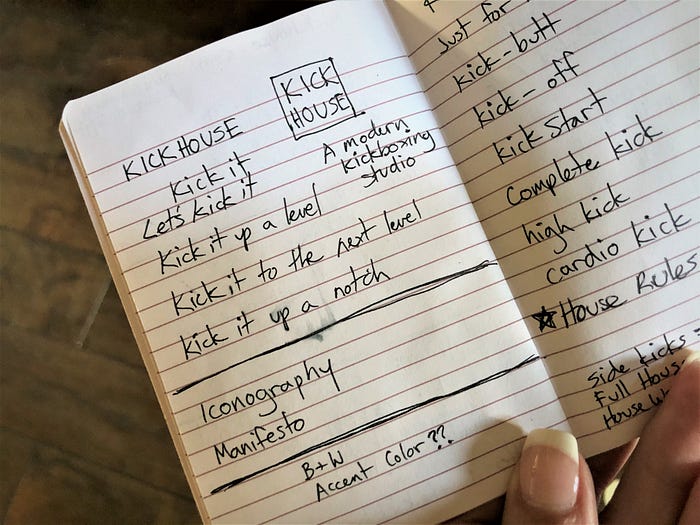 KICK
HOUSE
KICKHOUSE
Kick it
Let's kick it
A modern
kickboxing
studio
Kick it up a level
Kick it to the next level
kick it up a notch
Iconography
Manifesto
B+W
Accent Color??
Just for
kick-butt
kick-off
kick start
Complete kick
high kick
cardio kick
★House Rules
side kicks
Full House
House